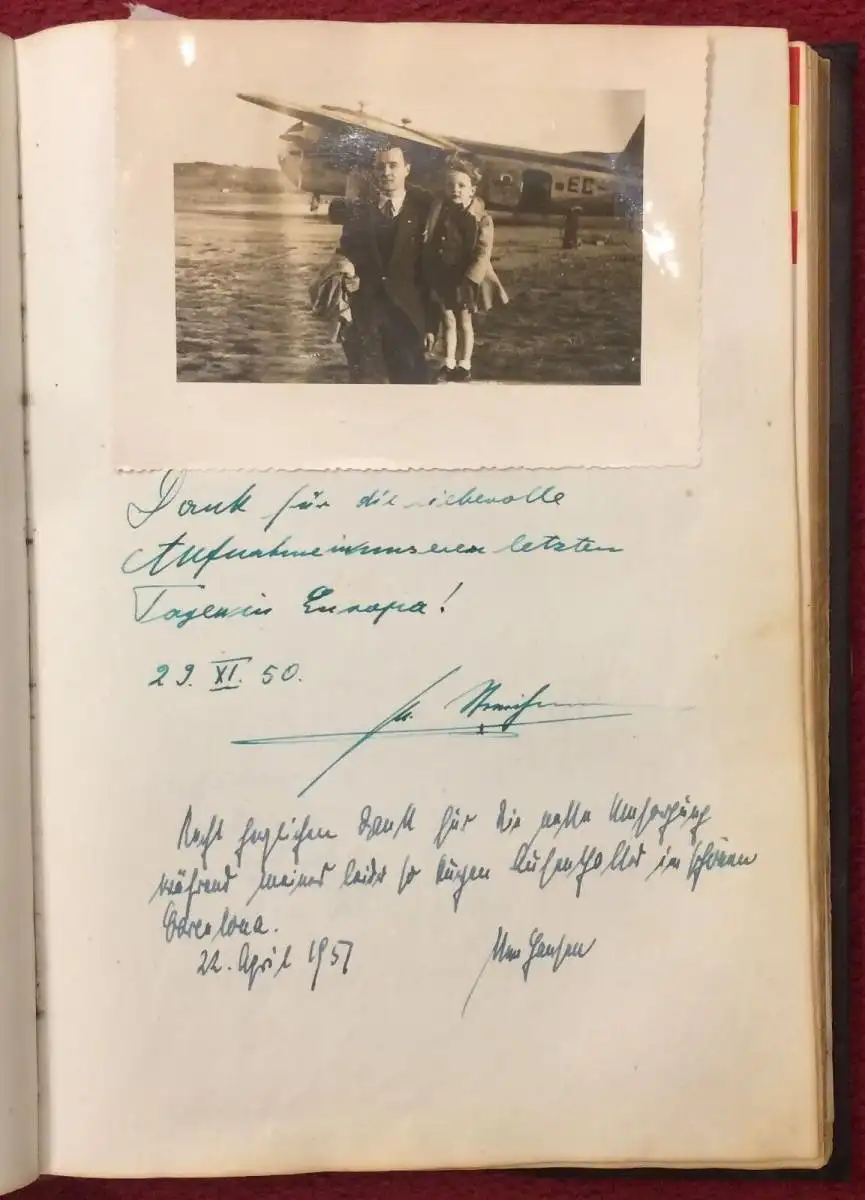 EC-
Dank für die liebevolle
Aufnahme in unseren letzten
Tagen in Europa!
29. XI. 50.
Recht herzlichen Dank für die nette Umsorgung
während meines leider so kurzen Aufenthaltes im schönen
Barcelona.
22. April 1957
Uwe Hansen